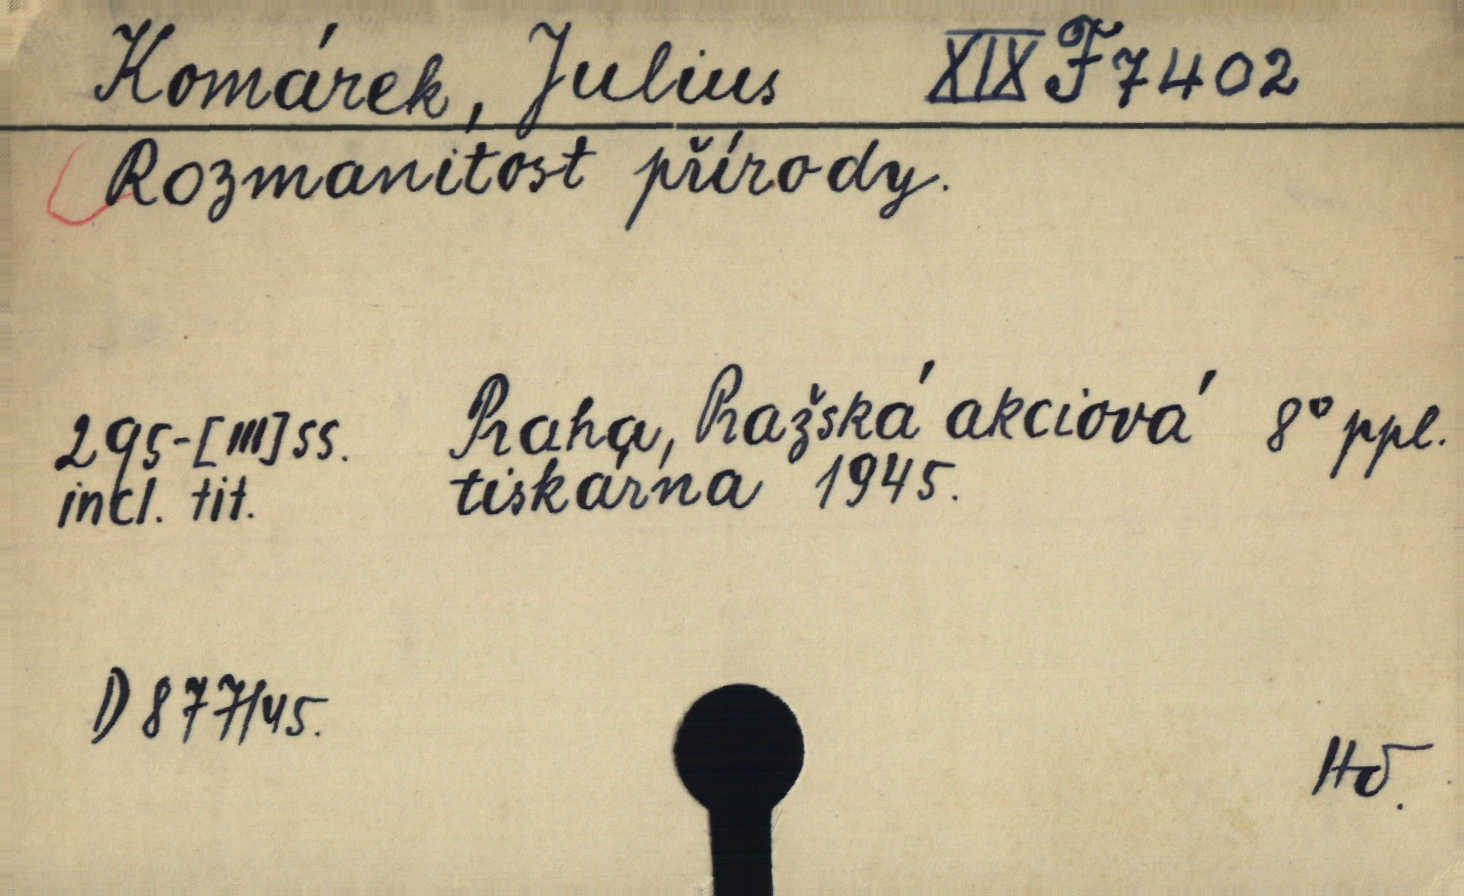 Komárek, Julius XIX F 7402
Rozmanitost přírody.
295-[III] ss. Praha, Pražská akciová 8° ppl.
incl. tit. tiskárna 1945.
D 877/45.